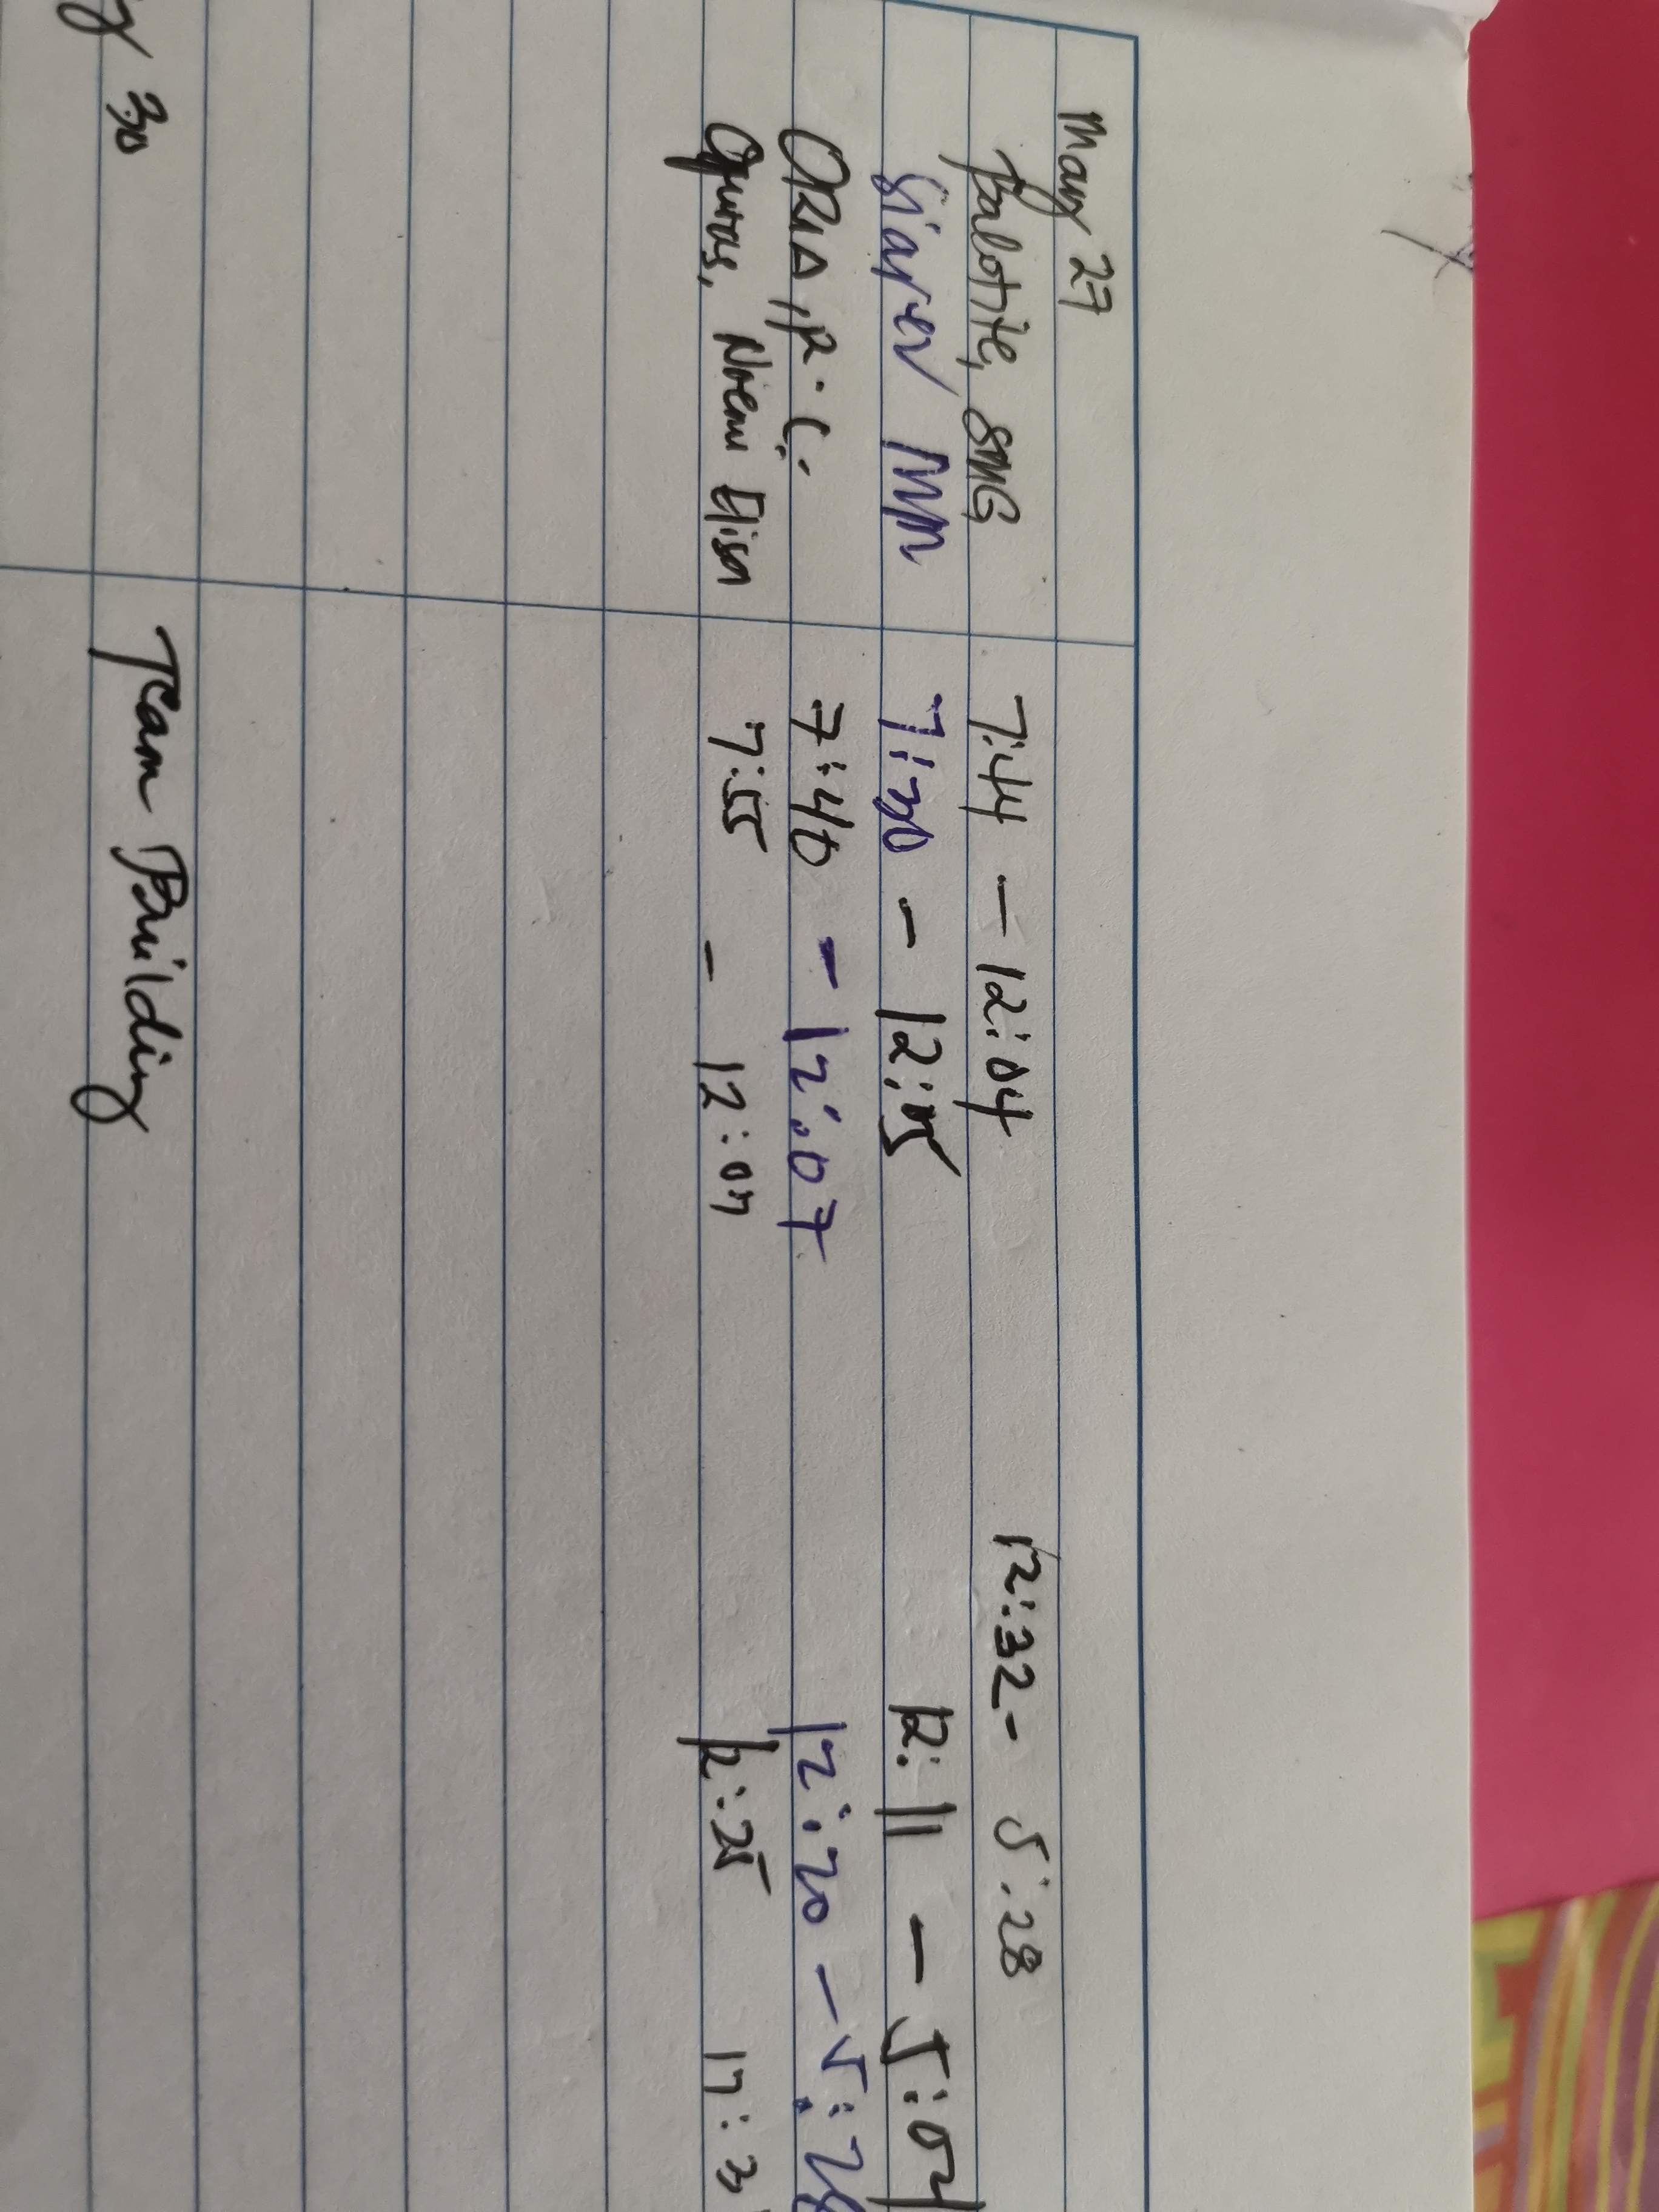 May 27
Balotite, SMG 7:44 - 12:04 12:32 - 5:28
Siarev MM 7:30 - 12:05 12:11 - 5:04
ORIA, R.C. 7:40 - 12:07 12:20 - 5:28
Noemi Elisa 7:55 - 12:07 12:25 17:3
30 Team Building